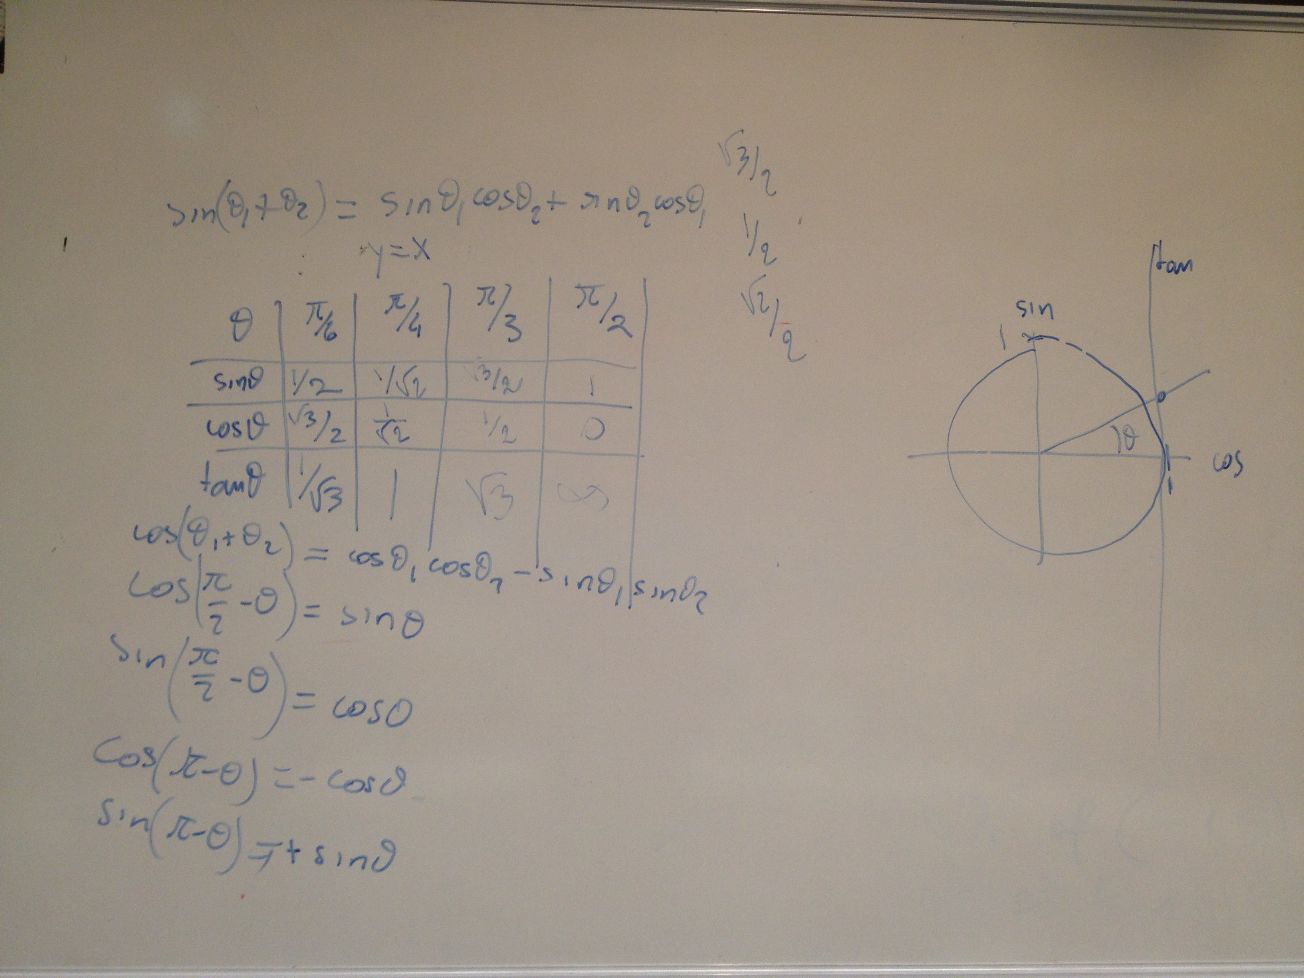 √3/2
sin(θ₁+θ₂) = sinθ₁ cosθ₂ + sinθ₂ cosθ₁
1/2
y=x
√2/2
θ π/6 π/4 π/3 π/2
sinθ 1/2 1/√2 √3/2 1
cosθ √3/2 1/√2 1/2 0
tanθ 1/√3 1 √3 ∞
cos(θ₁+θ₂) = cosθ₁ cosθ₂ - sinθ₁ sinθ₂
cos(π/2 - θ) = sinθ
sin(π/2 - θ) = cosθ
cos(π-θ) = -cosθ
sin(π-θ) = + sinθ
tan
sin
1
θ
cos